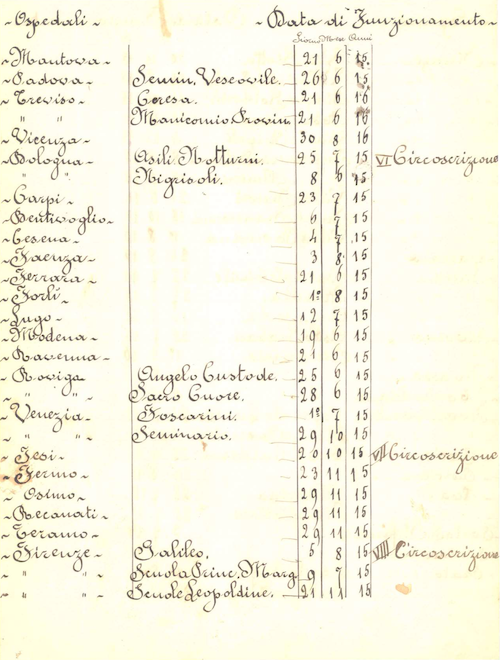 ~ Ospedali ~ ~ Data di Funzionamento ~
Giorno Mese Anni
~ Mantova ~ 21 6 15
~ Padova ~ Semin. Vescovile. 26 6 15
~ Treviso ~ Ceresa. 21 6 16
~ " " ~ Manicomio Provin 21 6 16
~ Vicenza ~ 30 8 16
~ Bologna ~ Asili Notturni. 25 7 15 VI Circoscrizione
~ " " ~ Nigrisoli. 8 6 15
~ Carpi ~ 23 7 15
~ Bentivoglio ~ 6 7 15
~ Cesena ~ 4 7 15
~ Faenza ~ 3 8 15
~ Ferrara ~ 21 6 15
~ Forlì ~ 1º 8 15
~ Lugo ~ 12 7 15
~ Modena ~ 19 6 15
~ Ravenna ~ 21 6 15
~ Roviga ~ Angelo Custode. 25 6 15
~ " " ~ Sacro Cuore. 28 6 15
~ Venezia ~ Foscarini. 1º 7 15
~ " " ~ Seminario. 29 10 15
~ Jesi ~ 20 10 15 VII Circoscrizione
~ Fermo ~ 23 11 15
~ Osimo ~ 29 11 15
~ Recanati ~ 29 11 15
~ Teramo ~ 29 11 15
~ Firenze ~ Galileo. 5 8 15 VIII Circoscrizione
~ " " ~ Scuola Princ. Marg 9 7 15
~ " " ~ Scuole Leopoldine. 21 11 15